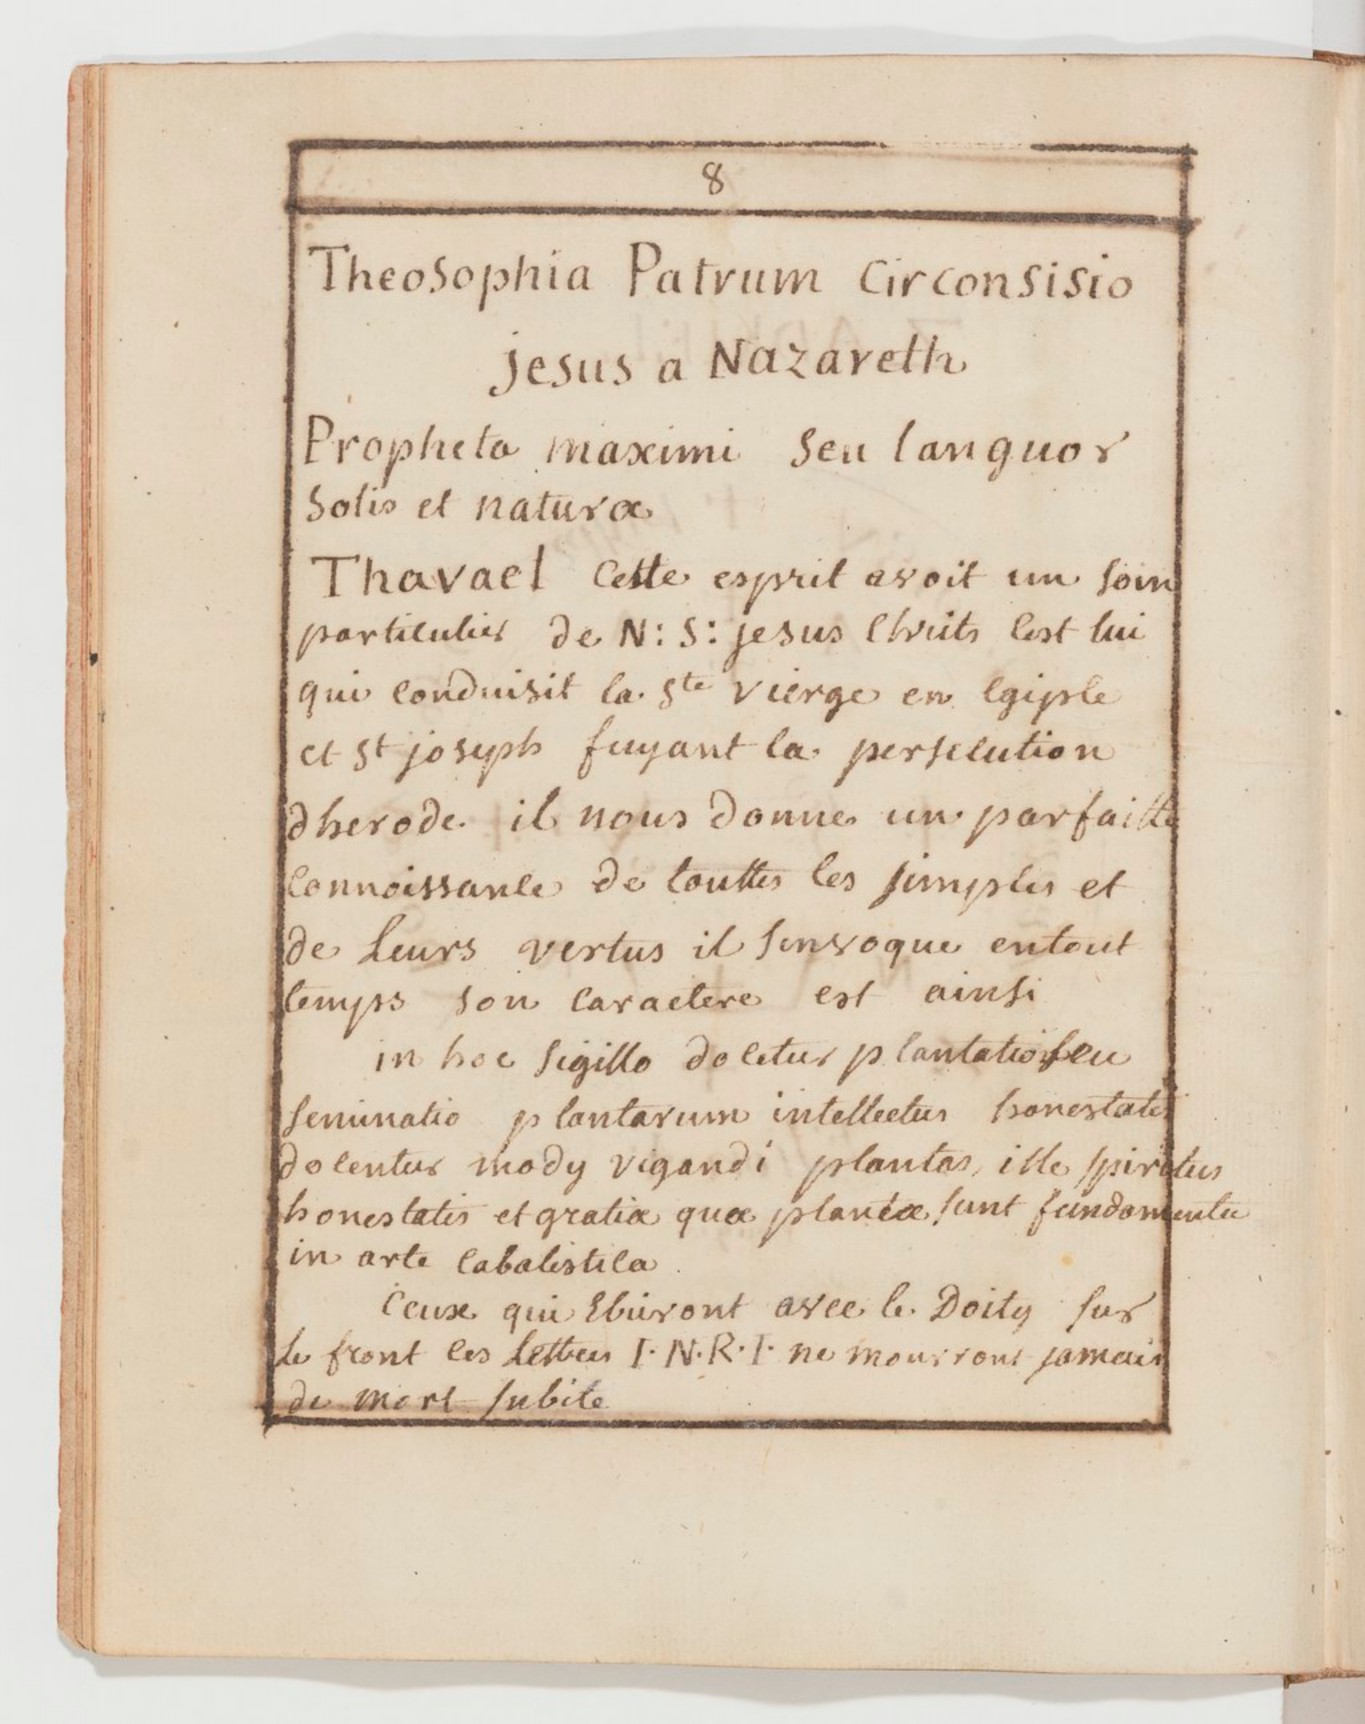 8
Theosophia Patrum Circonsisio
jesus a Nazareth
Propheta maximi seu languor
Solis et naturæ
Thavael Cette esprit avoit un soin
particulier de N: S: jesus Chrits cest lui
qui conduisit la Ste vierge en egipte
et St joseph fuyant la persecution
dherode il nous donne un parfaitte
connoissance de touttes les simples et
de Leurs vertus il sinvoque entout
temps son caractere est ainsi
in hoc sigillo docetur plantatio seu
seminatio plantarum intellectus honestatis
docentur mody vigandi plantas, ille spiritus
honestatis et gratiæ quæ plantæ sunt fundamenta
in arte cabalistica.
Ceux qui Ecriront avec le Doity sur
Le front les Lettres I·N·R·I· ne mourront jamais
de mort subite